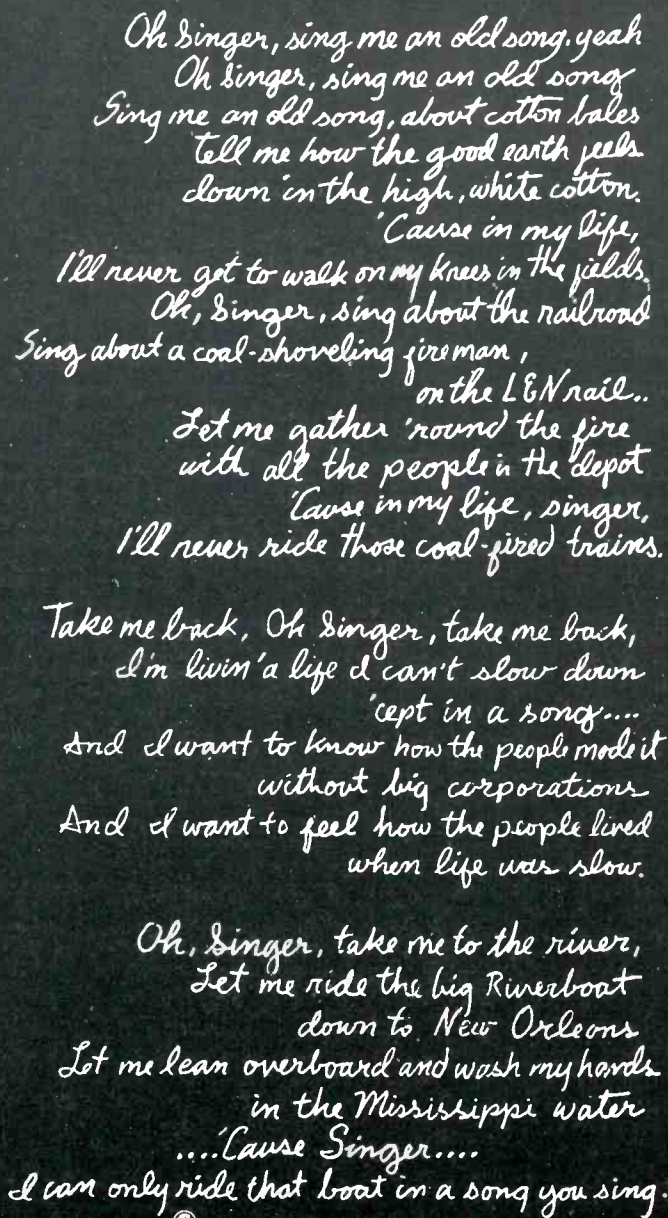 Oh Singer, sing me an old song. yeah
Oh Singer, sing me an old song
Sing me an old song, about cotton bales
tell me how the good earth feels
down in the high, white cotton.
'Cause in my life,
I'll never get to walk on my knees in the fields.
Oh, Singer, sing about the railroad
Sing about a coal-shoveling fireman,
on the L&N rail..
Let me gather 'round the fire
with all the people in the depot
'Cause in my life, singer,
I'll never ride those coal-fired trains.
Take me back, Oh Singer, take me back,
I'm livin' a life I can't slow down
'cept in a song....
And I want to know how the people made it
without big corporations
And I want to feel how the people lived
when life was slow.
Oh, Singer, take me to the river,
Let me ride the big Riverboat
down to New Orleans
Let me lean overboard and wash my hands
in the Mississippi water
....'Cause Singer....
I can only ride that boat in a song you sing.